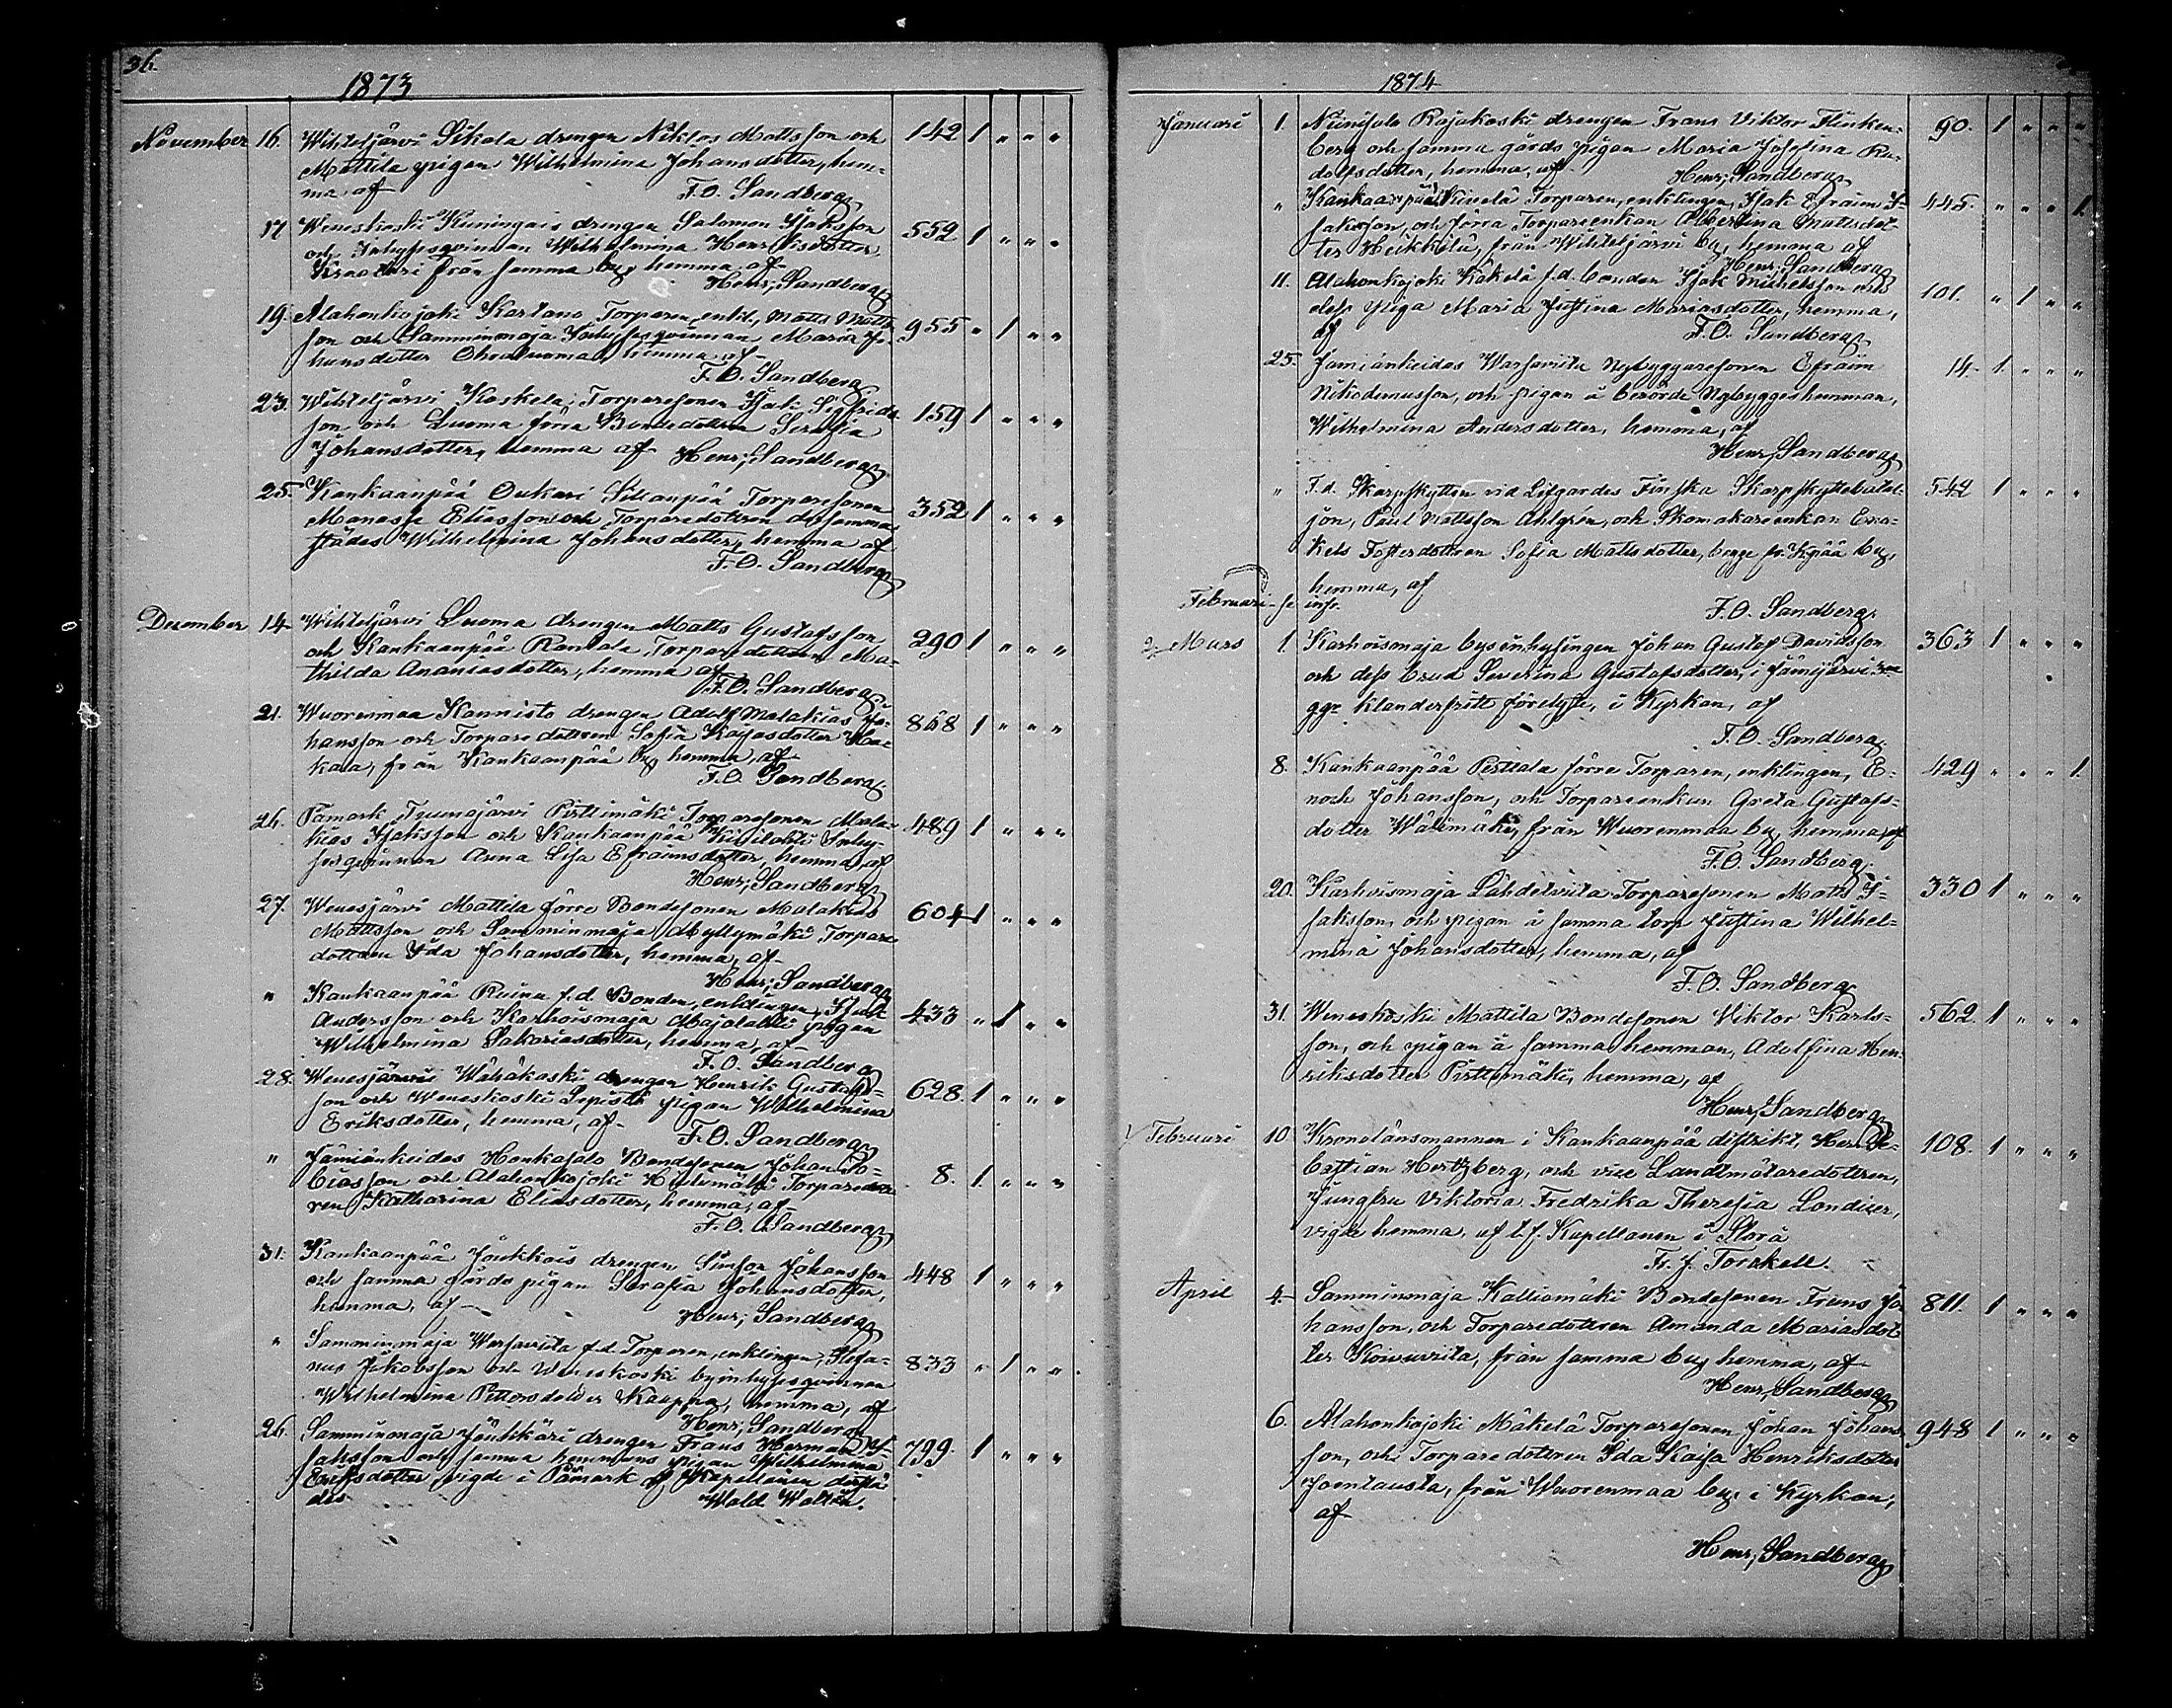 36.
1873
November 16. Wihteljärvi Sikala drengen Niklas Mattsson och 142 1 " " "
Mattila pigan Wilhelmina Johansdotter, hem-
ma, af F. O. Sandberg
17 Weneskoski Kuningais drengen Salomon Isaksson 552 1 " " "
och Inhysesqvinnan Wilhelmina Henriksdotter
från samma by, hemma af
Henr; Sandberg
19. Alahonkojoki Kartano Torparen, enkl., Matts Matts- 955 " 1 " "
son och Samminmaja Inhysesqvinnan Maria Jo-
hansdotter hemma af
F. O. Sandberg
23. Wihteljärvi Koskela Torparesonen Isak Sigfrids- 159 1 " " "
son och Luoma förra Bondedottren Serafia
Johansdotter, hemma af Henr; Sandberg
25. Kankaanpää Oukari Sillanpää Torparesonen 352 1 " " "
Manasse Eliasson och Torparedottren dersamma-
städes Wilhelmina Johansdotter, hemma af
F. O. Sandberg
December 14 Wihteljärvi Luoma drengen Matts Gustafsson 290 1 " " "
och Kankaanpää Rantala Torparedottren Ma-
thilda Ananiasdotter, hemma af
F. O. Sandberg
21. Wuorenmaa Kannisto drengen Adolf Malakias Jo- 868 1 " " "
hansson och Torparedottren Sofia Kajsasdotter
från Kankaanpää by, hemma, af
F. O. Sandberg
26. Påmark Pirttimäki Torparesonen Mala- 489 1 " " "
kias Isaksson och Kankaanpää Inhy-
sesqvinnan Anna Lisa Efraimsdotter, hemma, af
Henr; Sandberg
27. Wenesjärvi Mattila förre Bondesonen Malakias 604 1 " " "
Mattsson och Samminmaja Myllymäki Torpare-
dottren Ida Johansdotter, hemma, af
Henr; Sandberg
" Kankaanpää Ruina f. d. Bonden, enklingen, Isak 433 " 1 " "
Andersson och Karhoismaja Majalahti pigan
Wilhelmina Sakariasdotter, hemma, af
F. O. Sandberg
28. Wenesjärvi Wähäkoski drengen Henrik Gustafs- 628. 1 " " "
son och Weneskoski Lepistö pigan Wilhelmina
Eriksdotter, hemma, af
F. O. Sandberg
" Jämiänkeidas Honkasalo Bondesonen Johan To- 8. 1 " " "
biasson och Alahonkojoki Torparedott-
ren Katharina Eliasdotter, hemma, af
F. O. Sandberg
31. Kankaanpää Joukkois drengen Simson Johansson 448 1 " " "
och samma gårds pigan Serafia Johansdotter,
hemma, af
Henr; Sandberg
" Samminmaja Warsawiita f. d. Torparen, enklingen, Stefa- 833 " 1 " "
nus Jakobsson och Weneskoski byinhysesqvinnan
Wilhelmina Pettersdotter Kauppa, hemma, af
Henr; Sandberg
26. Samminmaja Joukkäri drengen Frans Herman I- 799. 1 " " "
saksson och samma hemmans pigan Wilhelmina
Eriksdotter, vigde i Påmark af Kapellanen derstä-
des Wald Walten.
1874
Januari 1. Niinisalo Rajakoski drengen Frans Viktor Flinken- 90. 1 " " "
berg och samma gårds pigan Maria Josefina Ru-
dolfsdotter, hemma, af
Henr; Sandberg
" Kankaanpää Kivelä Torparen, enklingen, Isak Efraim I- 445. " " " 1
saksson, och förra Torpareenkan Albertina Mattsdot-
ter Heikkilä, från Wihteljärvi by, hemma af
Henr; Sandberg
11. Alahonkojoki Kakelä f. d. bonden Isak Michelsson och 101. " 1 " "
dess piga Maria Justina Mariasdotter, hemma,
af F. O. Sandberg
25. Jämiänkeidas Warsawiita Nybyggaresonen Efraim 14. 1. " " "
Nikodemusson, och pigan å berörde Nybyggeshemman,
Wilhelmina Andersdotter, hemma, af
Henr; Sandberg
" F. d. Skarpskytten vid Lifgardes Finska Skarpskyttebatal- 542 1 " " "
jon, Paul Mattsson Ahlgrén, och Skomakareenkan Eva-
Kels Fosterdottren Sofia Mattsdotter, begge fr. Kpää by,
hemma, af
Februari - se infr. F. O. Sandberg.
2, Mars 1. Karhoismaja byesinhysingen Johan Gustaf Davidsson 363 1 " " "
och dess brud Severina Gustafsdotter, i Jämijärvi 3ne
ggr klanderfritt förelyste, i Kyrkan, af
F. O. Sandberg
8. Kankaanpää Perttala förre Torparen, enklingen, E- 429 " " " 1.
noch Johansson, och Torpareenkan Greta Gustafs-
dotter Wälimäki, från Wuorenmaa by, hemma, af
F. O. Sandberg
20. Karhoismaja Lähdekviita Torparesonen Matts I- 330 1 " " "
saksson, och pigan å samma torp Justina Wilhel-
mina Johansdotter, hemma, af
F. O. Sandberg
31. Weneskoski Mattila Bondesonen Viktor Karls- 562. 1 " " "
son, och pigan å samma hemman, Adolfina Hen-
riksdotter Pirttimäki, hemma, af
Henr; Sandberg
1, Februari 10 Kronolänsmannen i Kankaanpää distrikt, Herr Se- 108. 1 " " "
bastian Hertzberg, och vice Landtmätaredottren,
Jungfru Viktoria Fredrika Theresia Londicer,
vigde hemma, af t. f. Kapellanen i Storå
Fr. J. Torckell.
April 4. Samminmaja Kalliomäki Bondesonen Frans Jo- 811. 1 " " "
hansson, och Torparedottren Amanda Mariasdot-
ter Koivuviita, från samma by, hemma, af
Henr; Sandberg
6. Alahonkojoki Mäkelä Torparesonen Johan Johans- 948 1 " " "
son, och Torparedottren Ida Kajsa Henriksdotter
Jomtausta, från Wuorenmaa by, i Kyrkan,
af
Henr; Sandberg